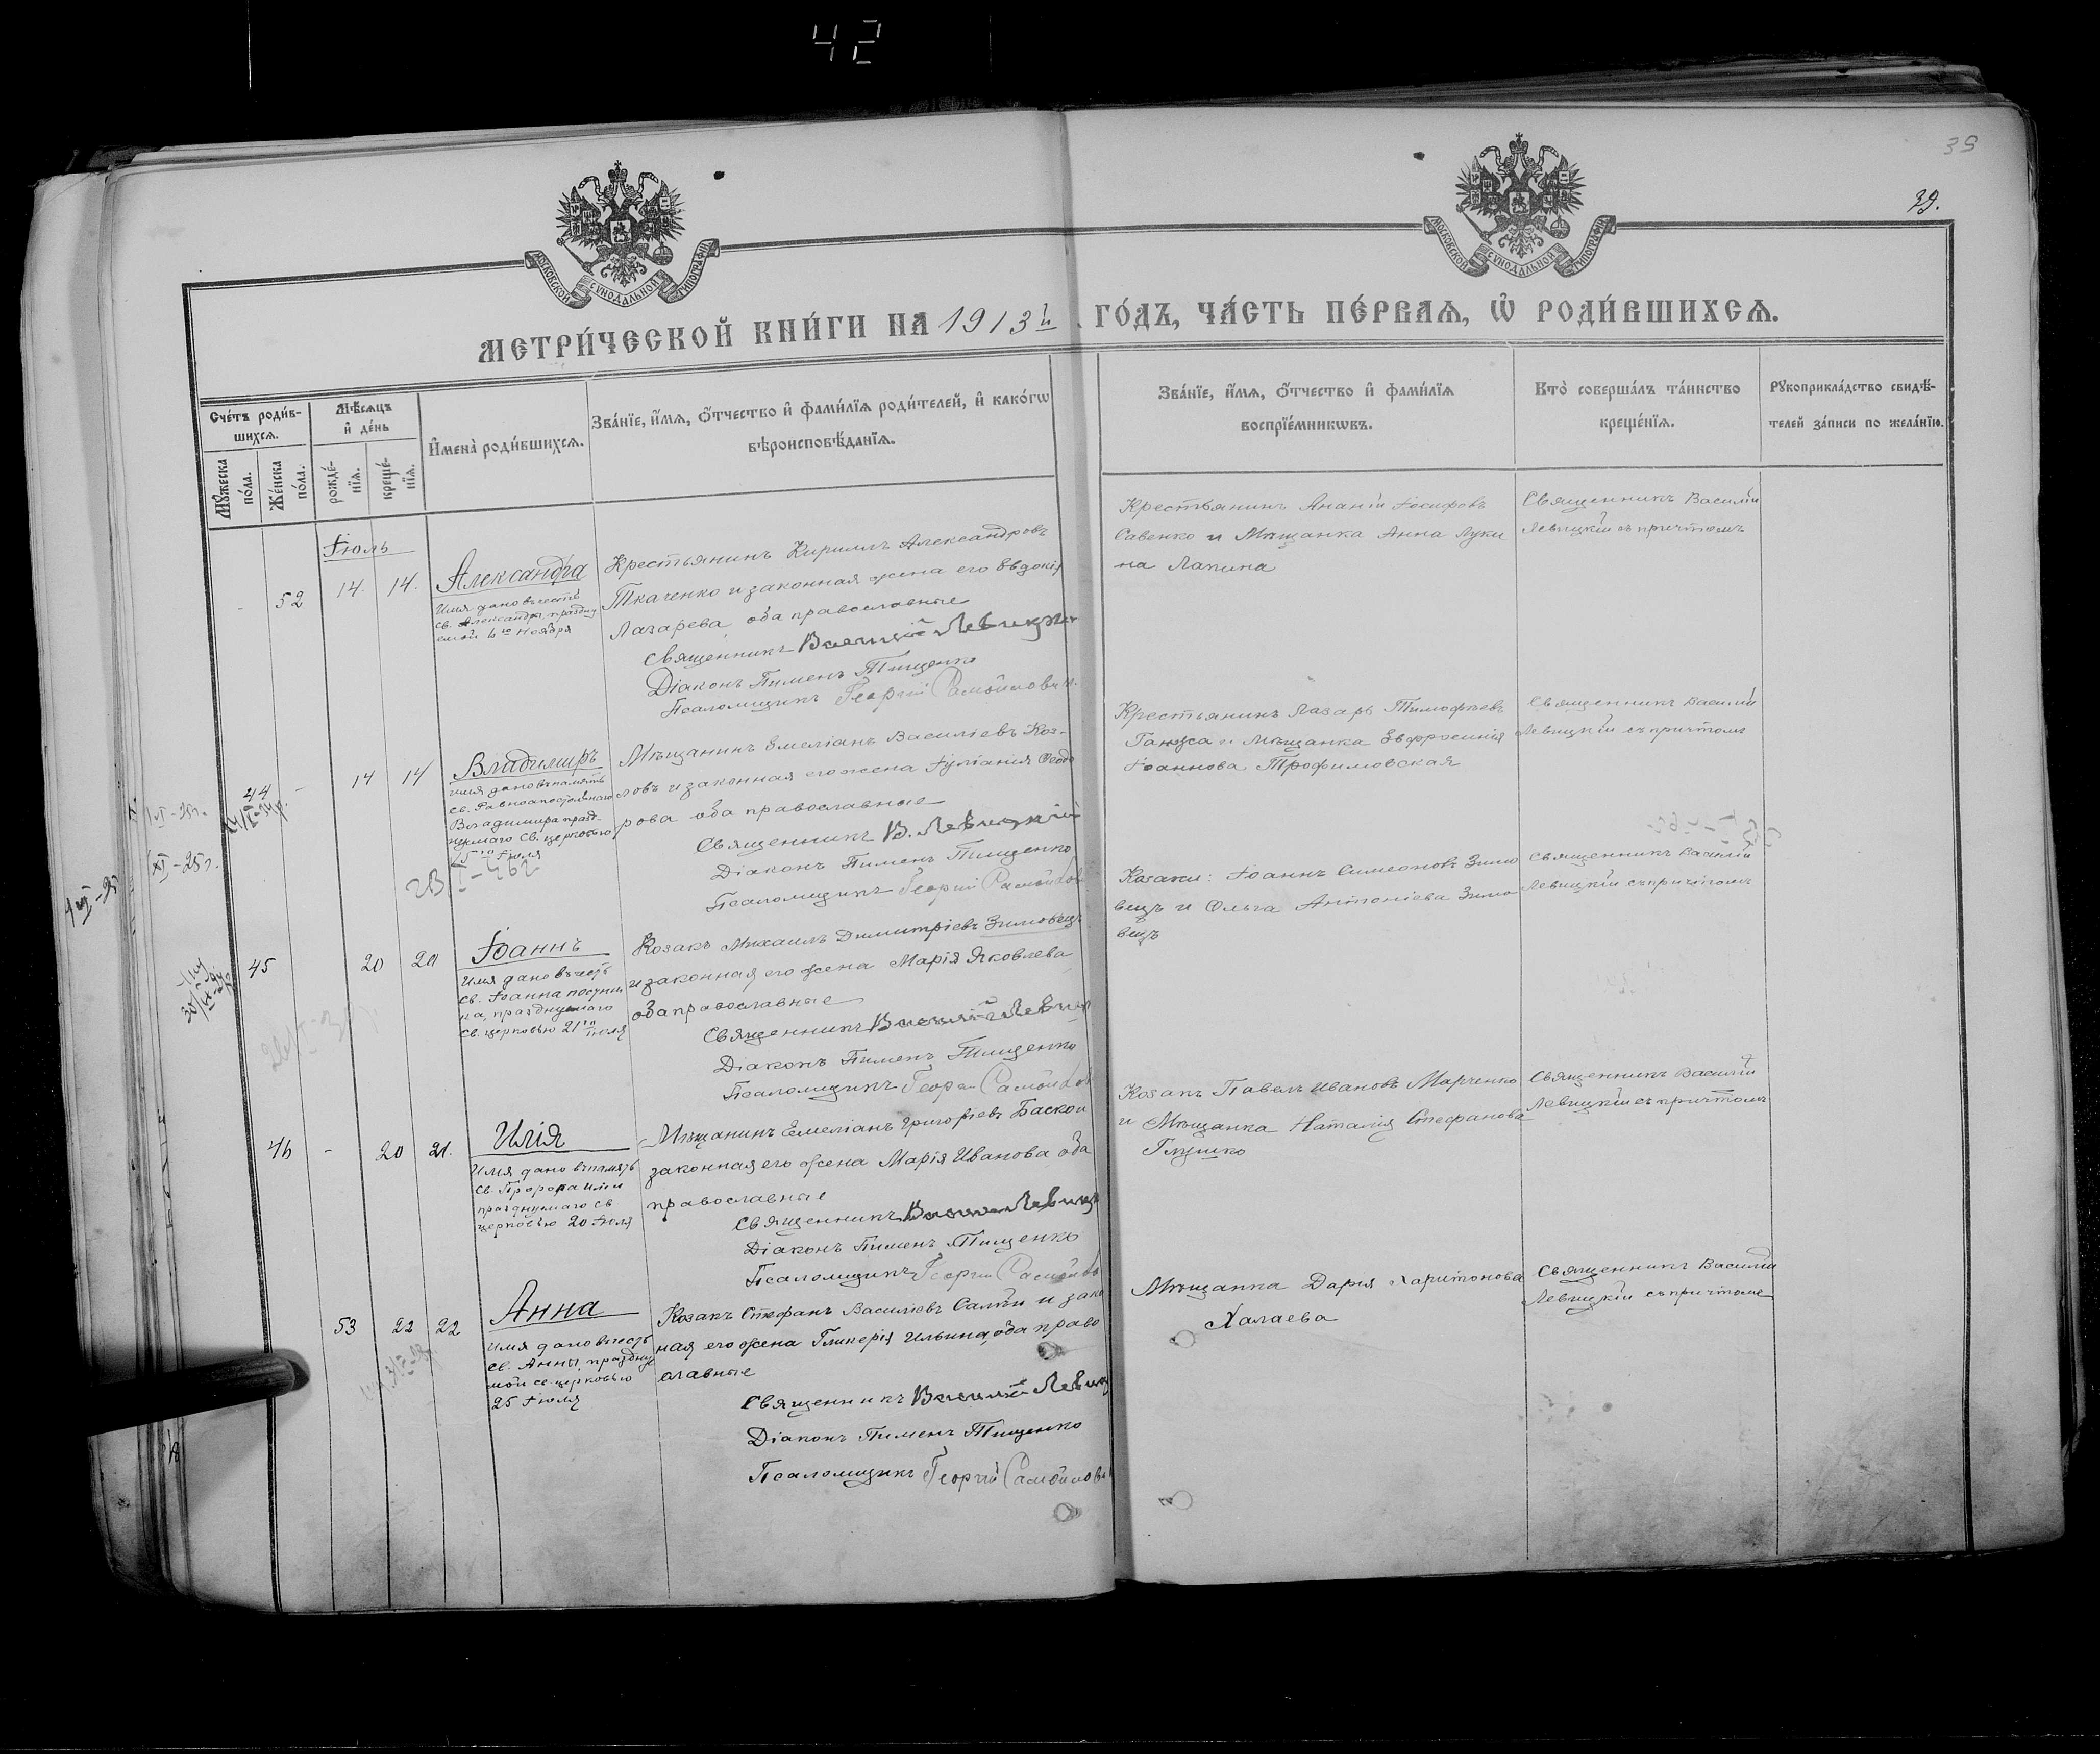 42
39
39.
МОСКОВСКОЙ СѴНОДАЛЬНОЙ ТИПОГРАФІИ
МОСКОВСКОЙ СѴНОДАЛЬНОЙ ТИПОГРАФІИ
МЕТРИ́ЧЕСКОЙ КНИ́ГИ НА 1913й ГО́ДЪ, ЧА́СТЬ ПЕ́РВАѦ, Ѽ РОДИ́ВШИХСѦ.
Сче́тъ роди́в-
шихсѧ.
Мꙋ́жеска по́ла.
Же́нска по́ла.
Мѣ́сѧцъ и҆ де́нь
рожде́-нїѧ.
креще́-нїѧ.
И҆мена̀ роди́вшихсѧ.
Зва́нїе, и҆́мѧ, ѻ҆́тчество и҆ фами́лїѧ роди́телей, и҆ како́гѡ
вѣроисповѣ́данїѧ.
Зва́нїе, и҆́мѧ, ѻ҆́тчество и҆ фами́лїѧ
воспрїе́мникѡвъ.
Кто̀ соверша́лъ та́инство
креще́нїѧ.
Рꙋкоприкла́дство свидѣ́-
телей за́писи по жела́нїю.
Іюль
52
14.
14.
Александра
Имя дано въ честь
св. Александры, праздну
емой 6го Ноября
Крестьянинъ Кириллъ Александровъ
Ткаченко и законная жена его Евдокія
Лазарева, оба православные
Священникъ Василій Левицкій
Діаконъ Пименъ Тищенко
Псаломщикъ Георгій Самойлови
Крестьянинъ Ананій Іосифовъ
Савенко и Мѣщанка Анна Луки
на Лапина
Священникъ Василій
Левицкій съ причтомъ
44
-
14
14
Владимиръ
Имя дано въ память
св. Равноапостольнаго
Владимира празд-
нуемаго св. церковью
15го Іюля
Мѣщанинъ Емеліанъ Василіевъ Коз-
ловъ и законная его жена Іуліанія Ѳеодо
рова оба православные
Священникъ В. Левицкій
Діаконъ Пименъ Тищенко
Псаломщикъ Георгій Самойлов
Крестьянинъ Лазарь Тимофѣевъ
и Мѣщанка Евфросинія
Іоаннова Трофимовская
Священникъ Василій
Левицкій съ причтомъ
45
20
20
Іоаннъ
Имя дано въ честь
св. Іоанна посунни
ка, празднуемаго
св. церковью 21го Іюля
Козакъ Михаилъ Димитріевъ Зимовецъ
и законная его жена Марія Яковлева
оба православные
Священникъ Василій Левиц
Діаконъ Пименъ Тищенко
Псаломщикъ Георгій Самойлов
Козаки: Іоаннъ Симеоновъ Зимо
вецъ и Ольга Антоніева Зимо
вецъ
Священникъ Василій
Левицкій съ причтомъ
46
-
20
21.
Илія
Имя дано въ память
св. Пророка Иліи
празднуемаго св.
церковью 20 Іюля
Мѣщанинъ Емеліанъ Григоріевъ Баскои
законная его жена Марія Иванова оба
православные
Священникъ Василій Левицк
Діаконъ Пименъ Тищенко
Псаломщикъ Георгій Самойлов
Козакъ Павелъ Ивановъ Марченко
и Мѣщанка Наталія Стефанова
Глушко
Священникъ Василій
Левицкій съ причтомъ
53
22
22
Анна
Имя дано въ честь
св. Анны, праздну
мой св. церковью
25 Іюля
Козакъ Стефанъ Василіевъ Салѣй и зако
ная его жена Гликерія Ильина, оба право
славные
Священникъ Василій Левиц
Діаконъ Пименъ Тищенко
Псаломщикъ Георгій Самойлови
Мѣщанка Дарія Харитонова
Халаева
Священникъ Василій
Левицкій съ причтомъ